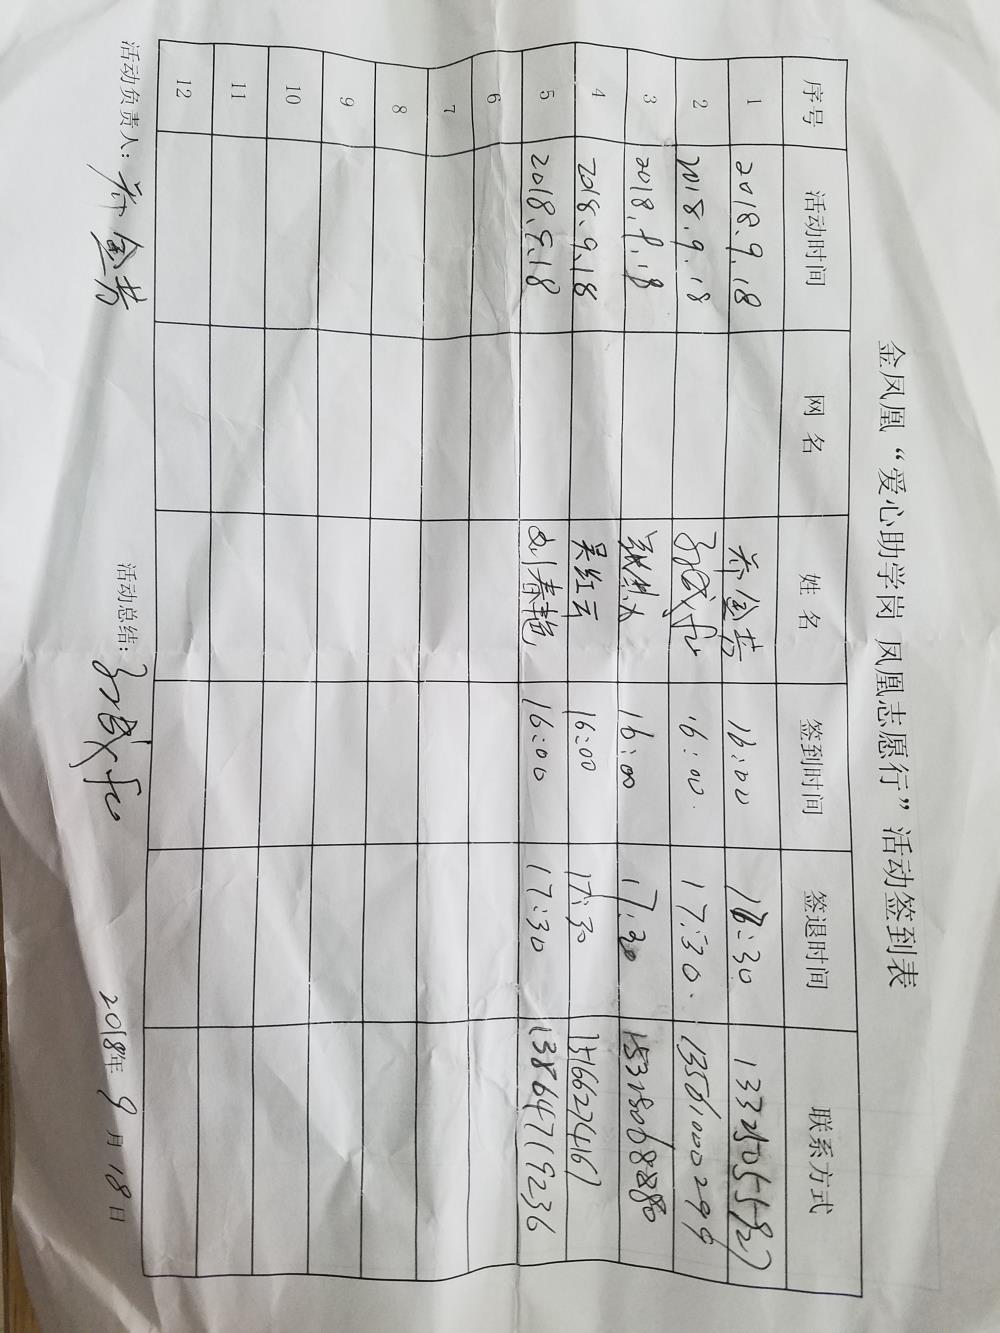 金凤凰“爱心助学岗 凤凰志愿行”活动签到表
序号 活动时间 网名 姓名 签到时间 签退时间 联系方式
1 2018.9.18 乔金芳 16:00 :30
2 2018.9.18 16:00 17:30 13561000299
3 2018.9.18 16:00 17:30
4 2018.9.18 吴红云 16:00 17:30 15166272461
5 2018.9.18 刘春艳 16:00 17:30 13864719236
6
7
8
9
10
11
12
活动负责人: 乔金芳 活动总结: 2018年9月18日